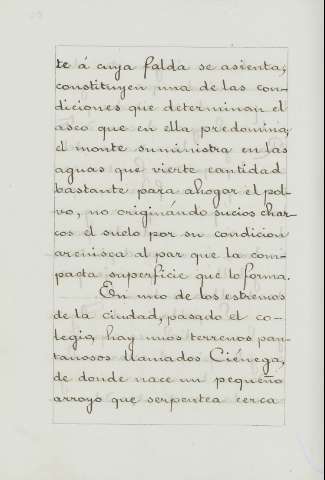 te á cuya falda se asienta,
constituyen una de las con-
diciones que determinan el
aseo que en ella predomina,
el monte suministra en las
aguas que vierte cantidad
bastante para ahogar el pol-
vo, no originando sucios char-
cos el suelo por su condicion
arenisca al par que la com-
pacta superficie que lo forma.
En uno de los estremos
de la ciudad, pasado el co-
legio, hay unos terrenos pan-
tanosos llamados Ciénega,
de donde nace un pequeño
arroyo que serpentea cerca